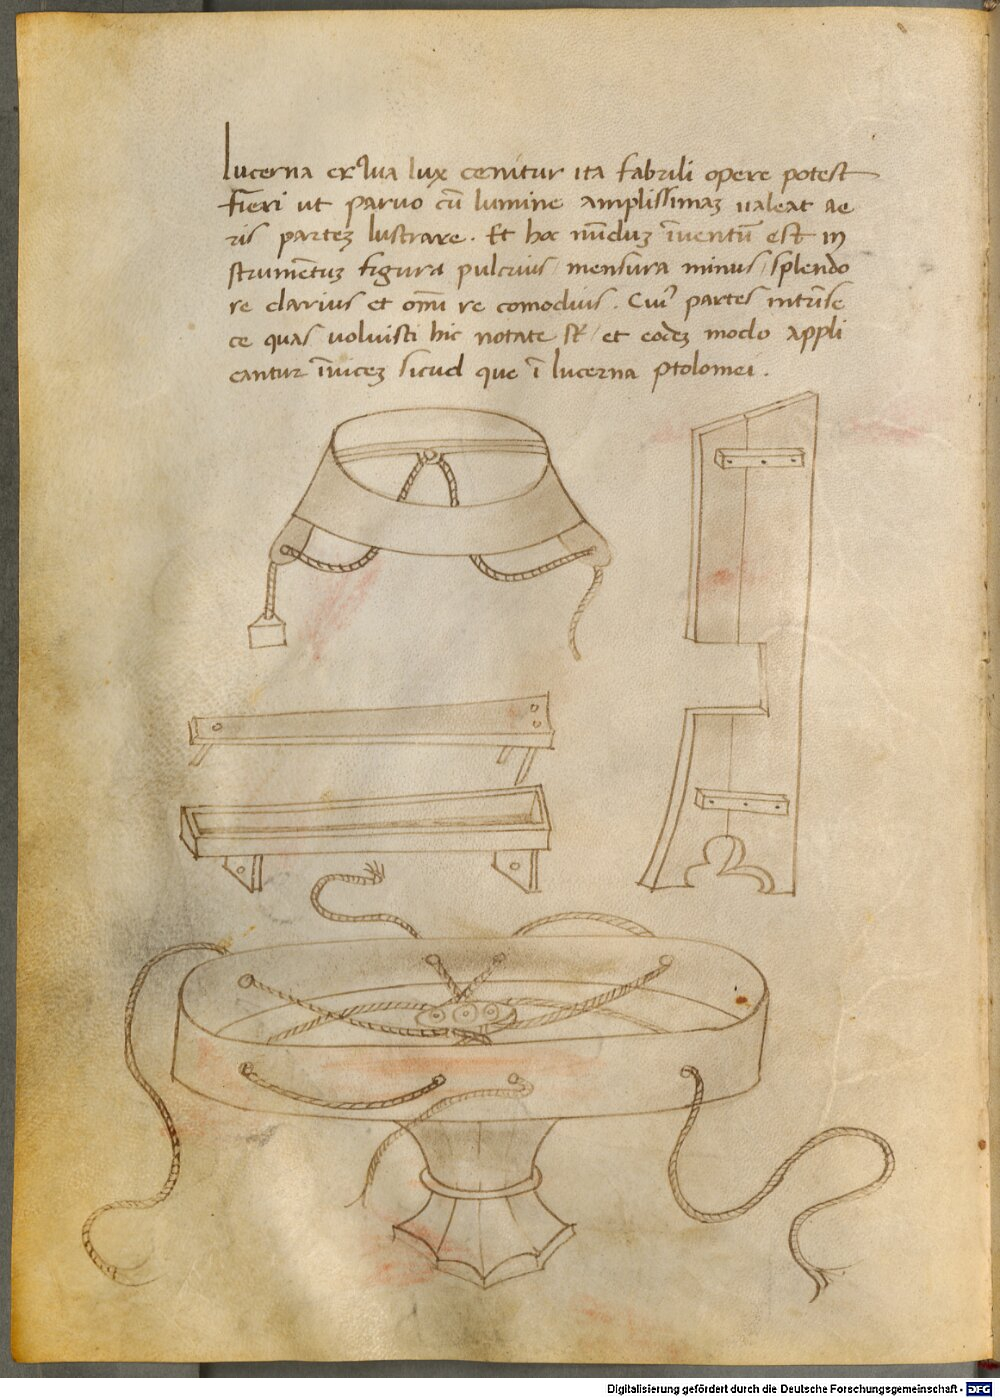 Lucerna ex qua lux cernitur ita fabrili opere potest
fieri ut paruo cū lumine amplissimaꝫ ualeat ae
ris parteꝫ lustrare. Et hoc nūduꝫ īuentū est in
strumētuꝫ figura pulcrius / mensura minus / splendo
re clarius et omī re comodius. Cuiꝰ partes intrīse
ce quas uoluisti hic notate st̄ / et eodeꝫ modo appli
cantur īuiceꝫ sicud que ī lucerna Ptolomei.
Digitalisierung gefördert durch die Deutsche Forschungsgemeinschaft - DFG